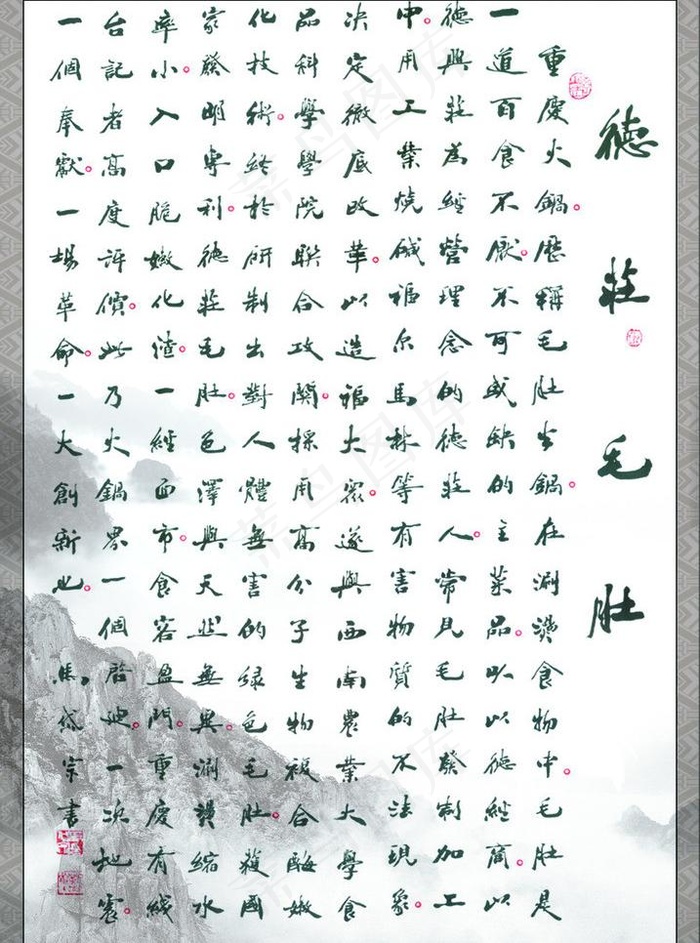 德莊毛肚
重慶火鍋。歷稱毛肚火鍋。在涮燙食物中。毛肚是
一道百食不厭不可或缺的主菜品。以德經商。以
德與莊為經營理念的德莊人。常見毛肚發制加工
中。用工業燒碱福尔馬林等有害物質的不法現象。
决定徹底改革。以造福大衆。遂與西南農業大學食
品科學學院聯合攻關。採用高分子生物複合酶嫩
化技術。終於研制出對人體無害的绿色毛肚。獲國
家發明專利。德莊毛肚。色澤與天然無異。涮燙縮水
率小。入口脆嫩化渣。一經面市。食客盈門。重慶有綫
台記者高度評價。此乃火鍋界一個啓迪。一次地震。
一個奉獻。一場革命。一大創新也。馬岱宗書
菜鸟图库
菜鸟图库